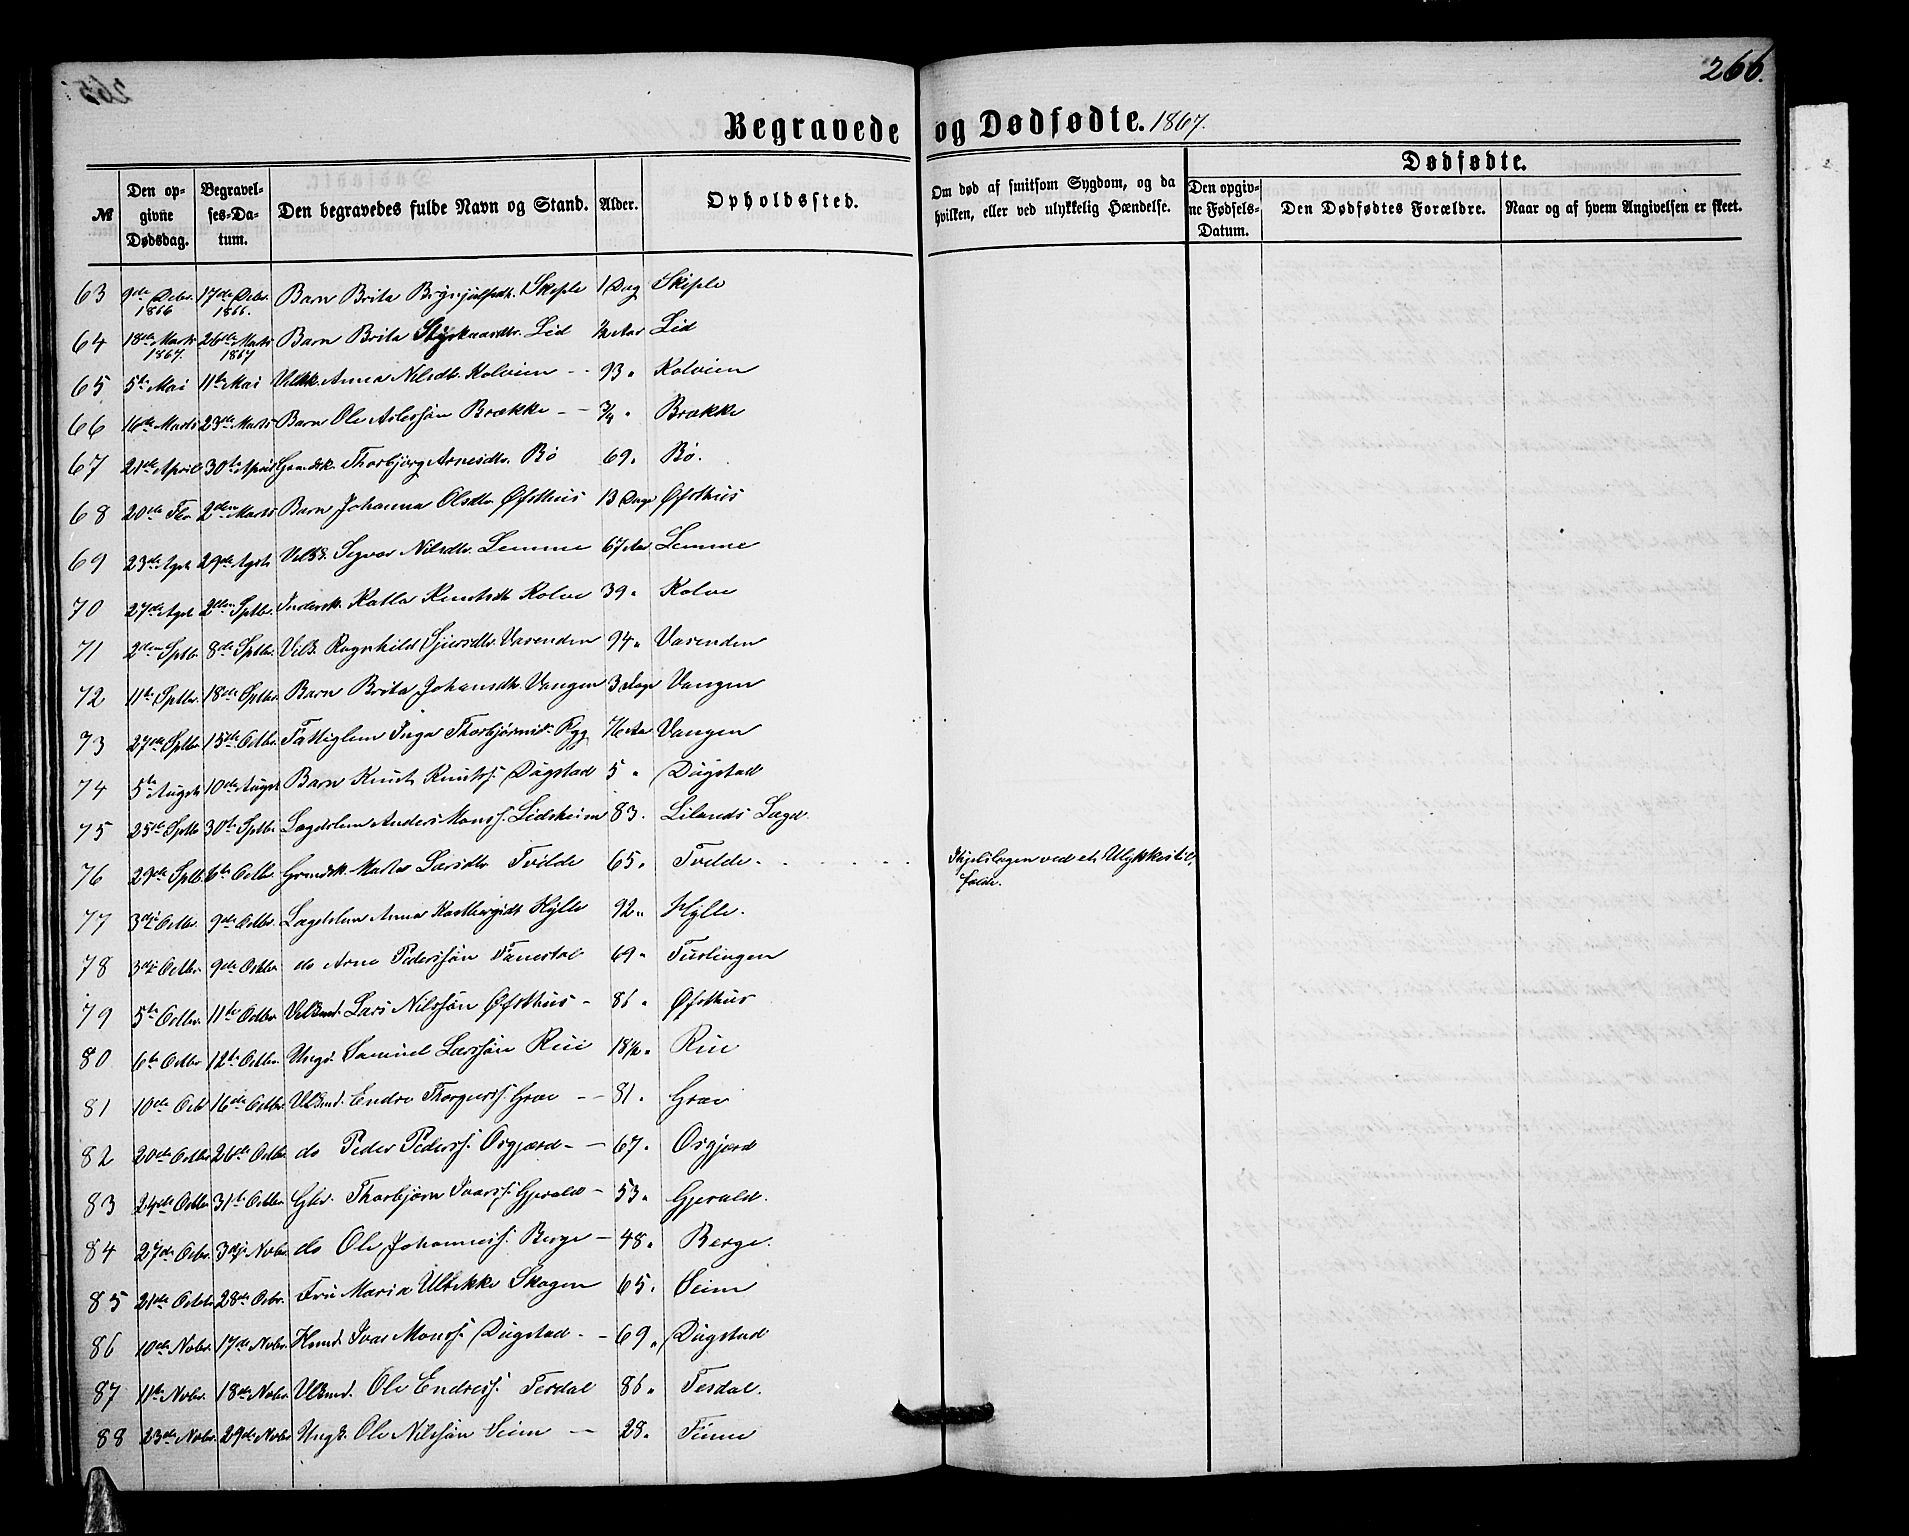 266.
Begravede og Dødfødte. 1867.
№ Den opgivne Dødsdag. Begravelses-Datum. Den begravedes fulde Navn og Stand. Alder. Opholdssted. Om død af smitsom Sygdom, og da hvilken, eller ved ulykkelig Hændelse. Dødfødte. Den opgivne Fødsels-Datum. Den Dødfødtes Forældre. Naar og af hvem Angivelsen er skeet.
63 9de Decbr. 1866 17de Decbr. 1866. Barn Brita Brynjulfsdtr. Skiple 1 Dag Skiple
64 18de Marts 1867. 26de Marts 1867 Barn Brita Styrkaarsdtr. Lid ½ Aar Lid
65 5te Mai 11te Mai Anna Nilsdtr. Kolvien - - 93 " Kolvien
66 16de Marts 23de Marts Barn Ole Brække - - ¾ " Brække
67 21de April 30te April Thorbjørg Arnesdtr. Bø 69 " Bø.
68 20de Fbr 2den Marts Barn Johanna Olsdtr. Øfsthus 13 Dage Øfsthus
69 23de Agst 29de Agst Nilsdtr. Lemme 67 Aar Lemme
70 27de Agst 2den Sptbr. Inderstk. Katla Knutsdtr Kolve 39 " Kolve
71 2den Sptbr 8de Sptbr. Ragnhild Sjursdtr. Varenden 94 " Varenden
72 11te Sptbr. 18de Sptbr Barn Brita Johansdtr. Vangen 3 Dage Vangen
73 27de Sptbr 15de Octbr. Fattiglem Inga Rygg Aar Vangen
74 5te Augst 10de Augst Barn Knut Knutss. Dugstad 5 " Dugstad
75 25de Sptbr 30te Sptbr. Lægdslem Anders Monss. Lidsheim 83. Lilands Lægd.
76 29de Sptb. 6te Octbr. Marta Larsdtr Tvilde 65 " Tvilde. Ihjelslagen ved et Ulykkestilfælde.
77 3die Octbr. 9de Octbr. Lægdslem Anna Hylle 92 " Hylle.
78 3die Octbr. 9de Octbr. do Arne Pederssøn 69 "
79 5te Octbr. 11te Octbr. Lars Nilssøn Øfsthus - 86 " Øfsthus
80 6te Octbr 12te Octbr. Ungk. Samuel Larssøn Rüi 18½ " Rüi
81 10de Octb 16de Octbr. Endre Thorgeirss. Græe - - 81 " Græe
82 20de Octbr 26de Octbr. do Peder Pederss. Osgjærd - - 67 " Osgjærd
83 24de Octbr 31te Octbr Gbr. Thorbjørn Ivarss. Gjerald - 53 " Gjerald.
84 27de Ocbr. 3die Nvbr. do Ole Johanness. Berge - 48 " Berge.
85 21de Octbr 28de Ocbr. Fru Maria Ulrikke Skagen 65 " Seim
86 10de Nvbr. 17de Nvbr. Ivar Monss. Dugstad - - 69 " Dugstad
87 11te Nvbr. 18de Nvbr. Ole Endress. Tesdal 86 " Tesdal.
88 23de Nvbr. 29de Nvbr. Ungk. Ole Nilssøn Seim - 28 "